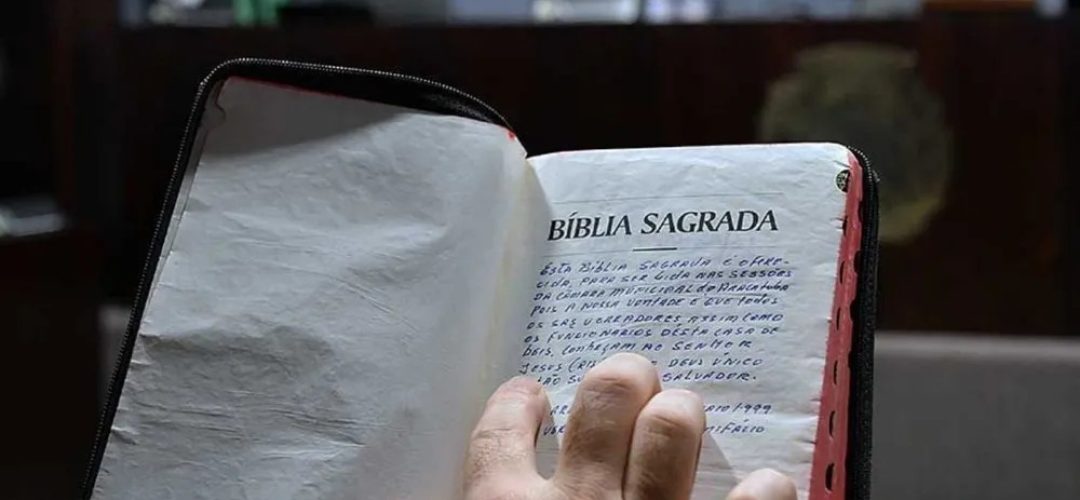 BÍBLIA SAGRADA
ESTA BÍBLIA SAGRADA É OFERE-
CIDA, PARA SER LIDA NAS SESSÕES
DA CÂMARA MUNICIPAL de ARAÇATUBA
POIS A NOSSA VONTADE É QUE TODOS
OS SRS VEREADORES ASSIM COMO
OS FUNCIONÁRIOS DESTA CASA DE
LEIS, CONHEÇAM AO SENHOR
JESUS DEUS ÚNICO
SALVADOR.
1999